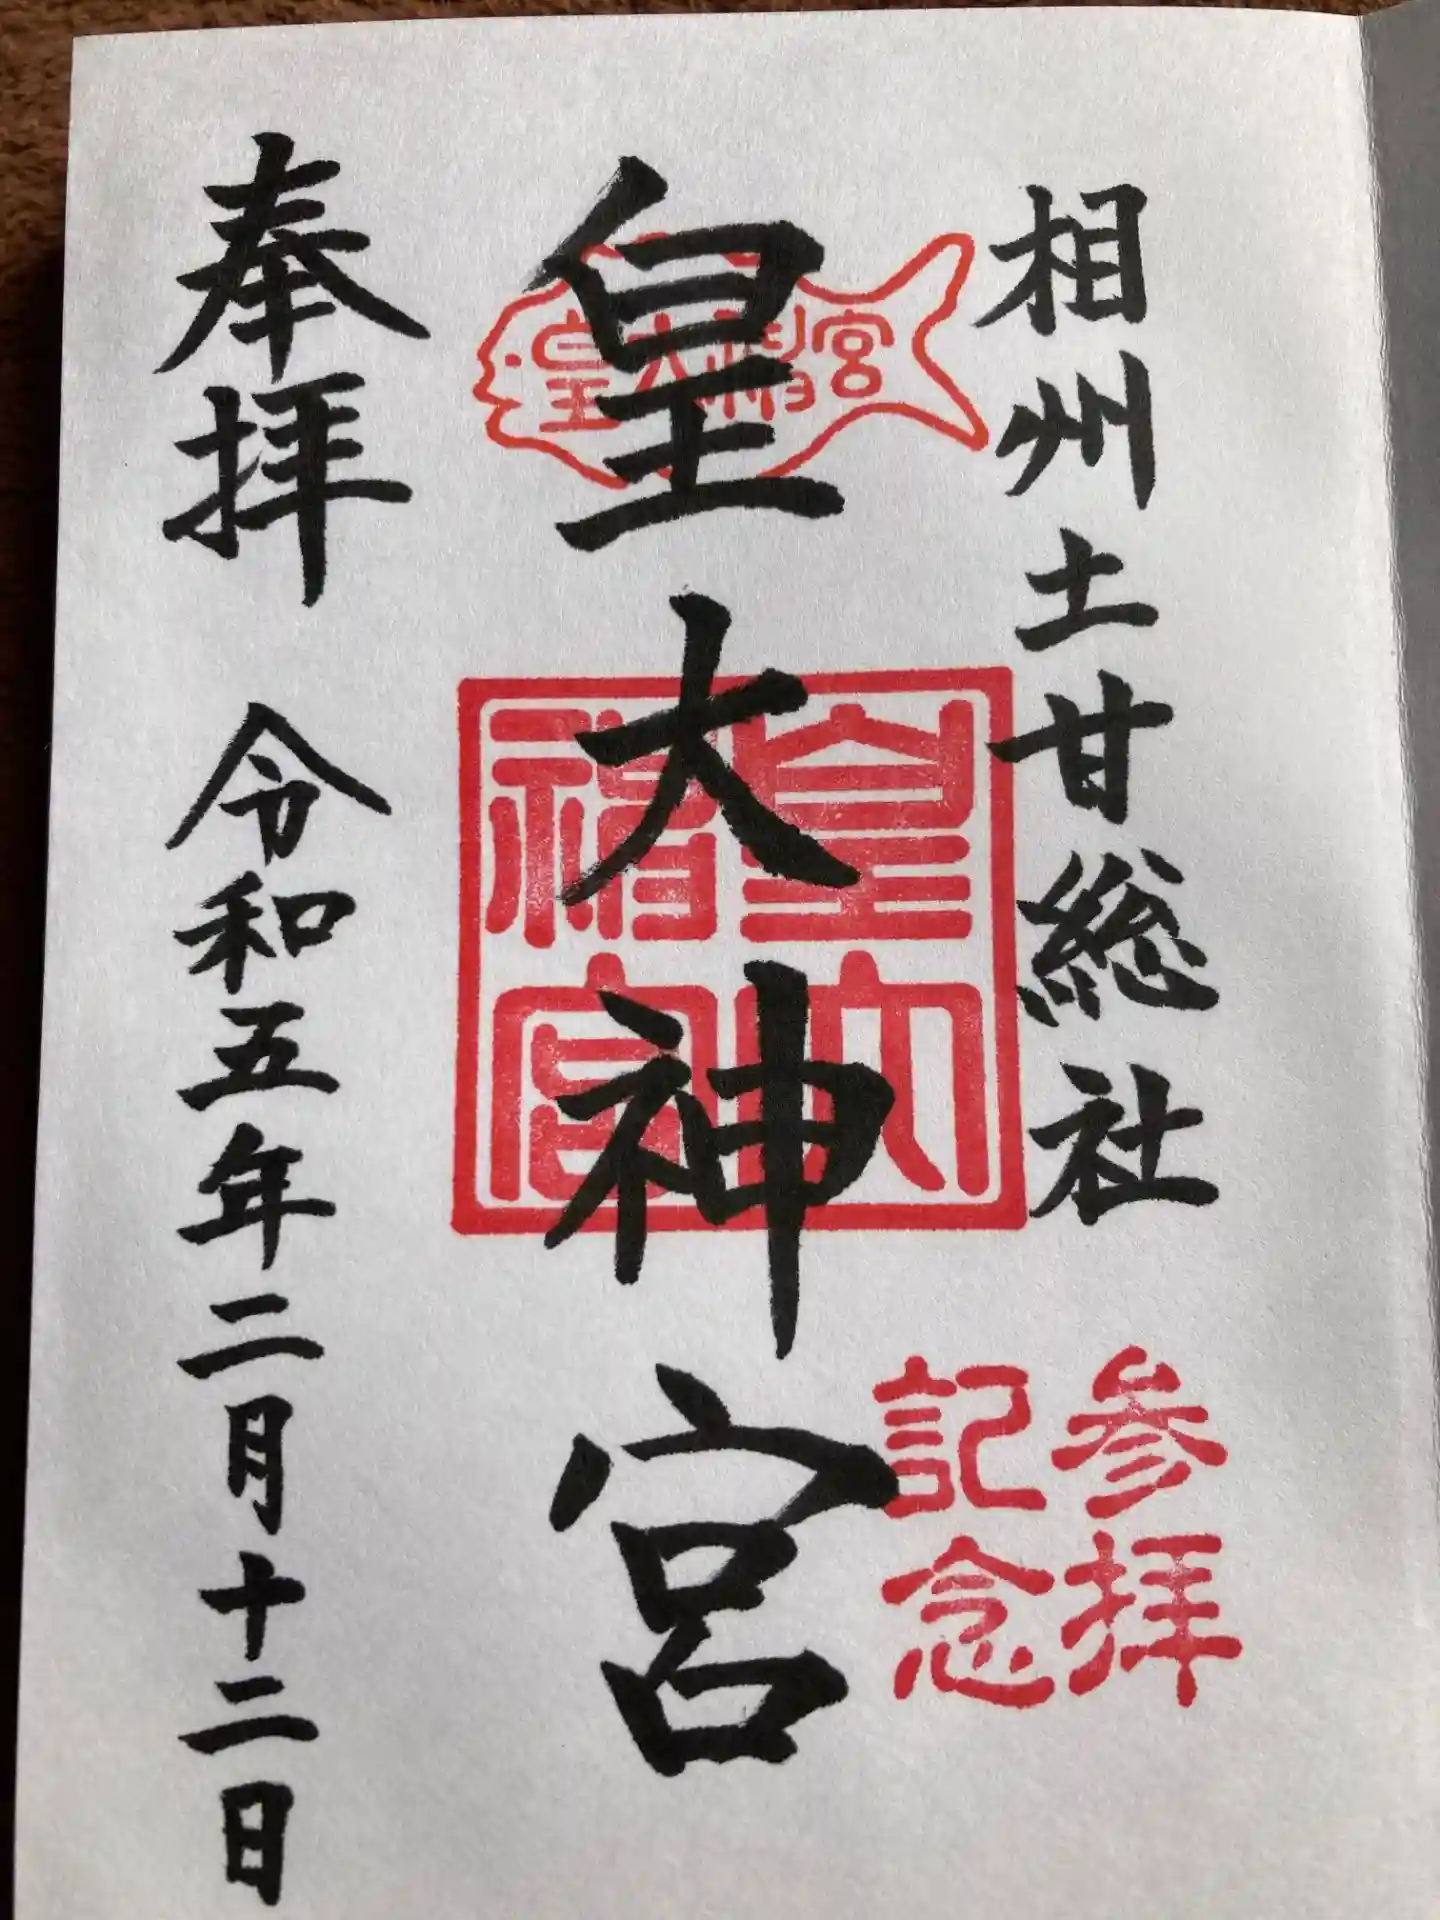 相州土甘総社
参拝
記念
皇大神宮
皇大神宮
皇大
神宮
奉拝 令和五年二月十二日